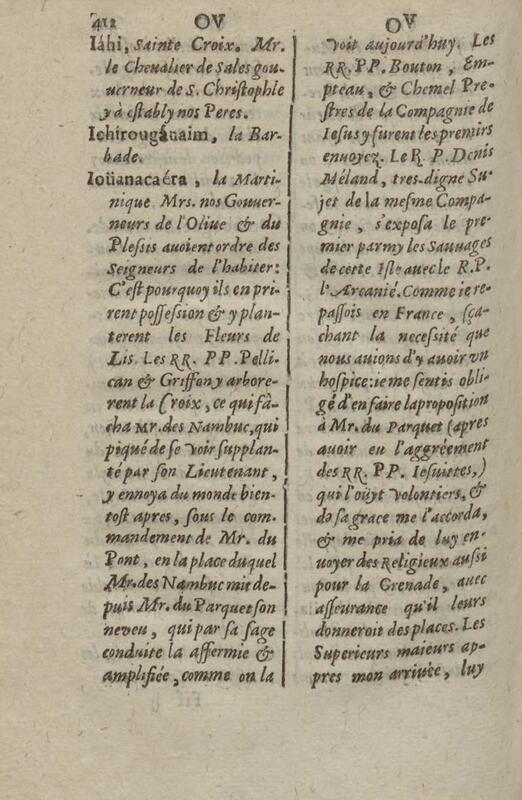 412 OV
Iáhi, Sainte Croix. Mr.
le Cheualier de Sales gou-
uerneur de S. Christophle
y à estably nos Peres.
Ichirougánaim, la Bar-
bade.
Ioüanacaéra, la Marti-
nique Mrs. nos Gouuer-
neurs de l'Oliue & du
Plessis auoient ordre des
Seigneurs de l'habiter:
C'est pourquoy ils en pri-
rent possession & y plan-
terent les Fleurs de
Lis. Les RR. PP. Pelli-
can & Griffon y arbore-
rent la Croix, ce qui fâ-
cha Mr. des Nambuc, qui
piqué de se voir supplan-
té par son Lieutenant,
y ennoya du monde bien-
tost apres, sous le com-
mandement de Mr. du
Pont, en la place duquel
Mr. des Nambuc mit de-
puis Mr. du Parquet son
neveu, qui par sa sage
conduite la affermie &
amplifiée, comme on la
OV
voit aujourd'huy. Les
RR. PP. Bouton, Em-
pteau, & Chemel Pre-
stres de la Compagnie de
Iesus y furent les premirs
enuoyez. Le R. P. Denis
Méland, tres-digne Su-
jet de la mesme Compa-
gnie, s'exposa le pre-
mier parmy les Sauuages
de cette Isle auec le R. P.
l'Arcanié. Comme ie re-
passois en France, sça-
chant la necessité que
nous auions d'y auoir vn
hospice: ie me sentis obli-
gé d'en faire la proposition
à Mr. du Parquet (apres
auoir eu l'aggréement
des RR. PP. Iesuittes,)
qui l'oüyt volontiers, &
de sa grace me l'accorda,
& me pria de luy en-
uoyer des Religieux aussi
pour la Grenade, auec
asseurance qu'il leurs
donneroit des places. Les
Superieurs maieurs ap-
pres mon arriuée, luy